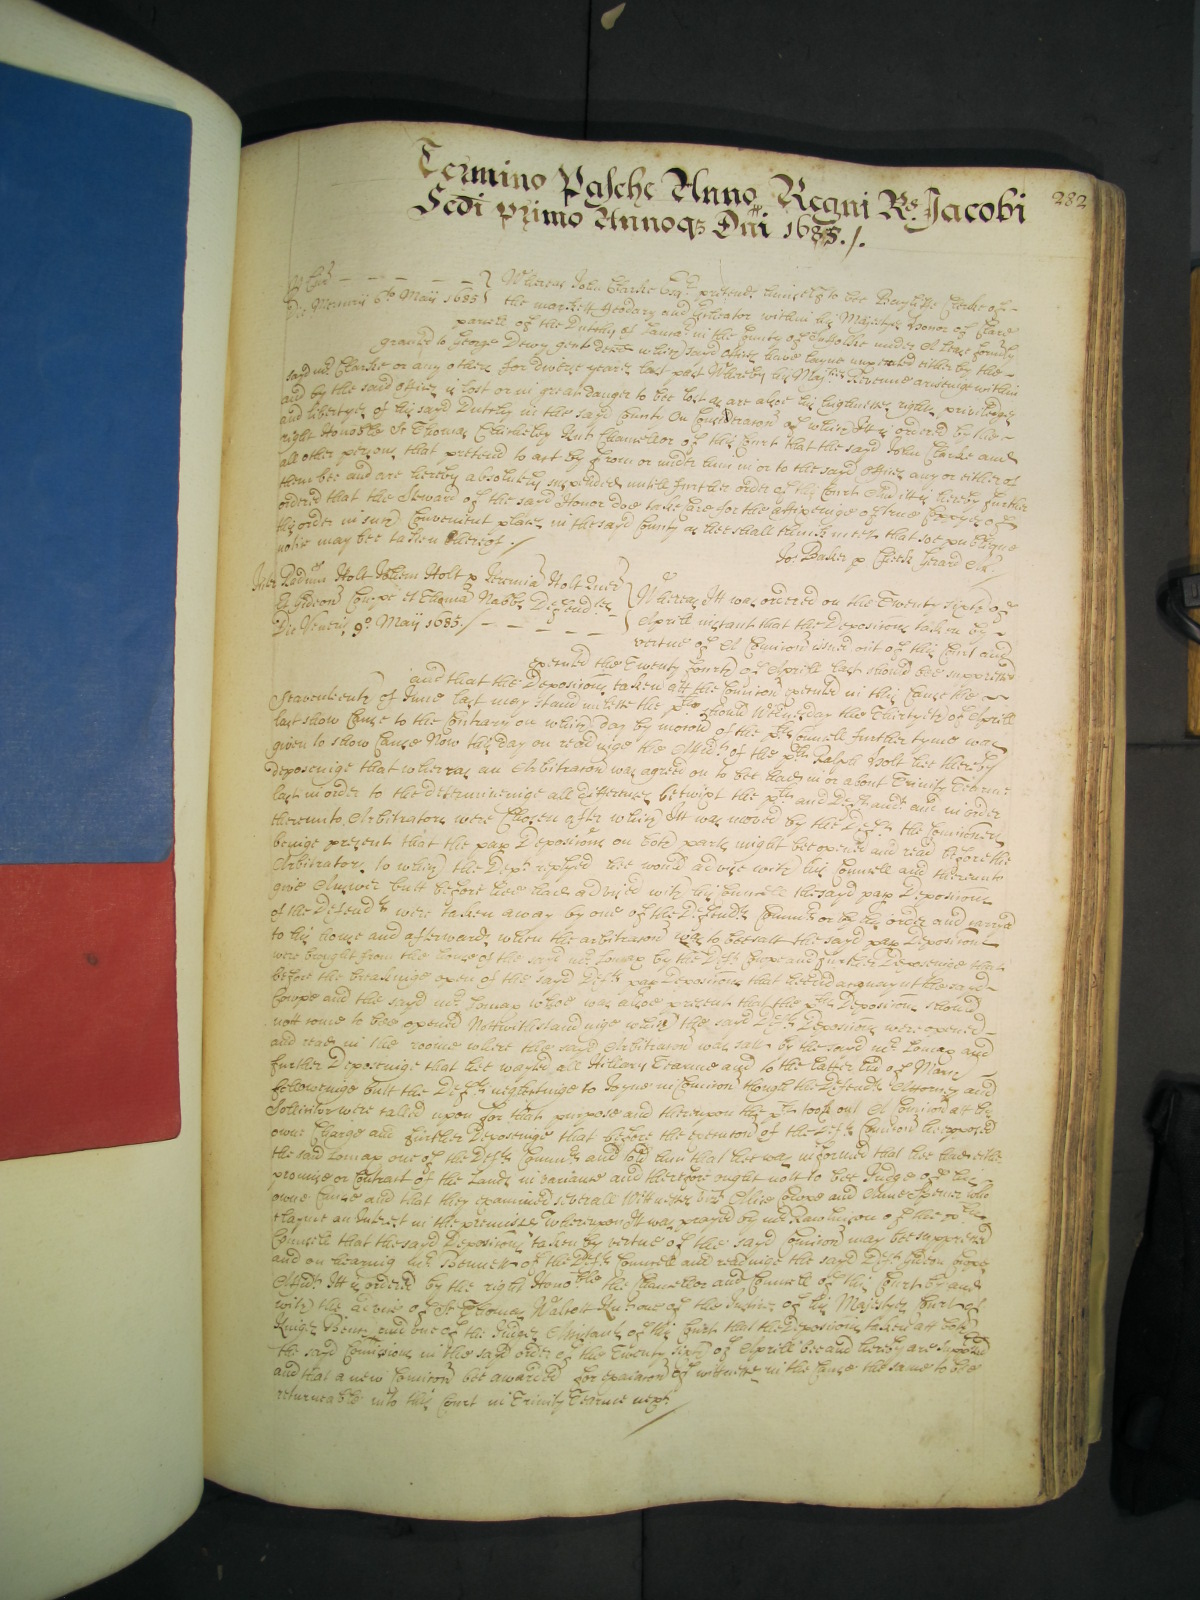 282
Termino Pasche Anno Regni Rs. Jacobi
Scdi primo Annoqz Dni 1685./.
Die Mercurii 6to Maii 1685 Whereas John Clarke Esqr. pretends himselfe to bee Clerke of
the markett Feodary and within his Majestyes Honor of Clare
parcell of the Dutchy of Lancr. in the County of Suffolke under A Lease formerly
graunted to George Dewy gent decd which sayd offices have layne unexecuted either by the
sayd mr. Clarke or any others for divers yeares last past Whereby his Majties Revenue ariseinge within
and by the said offices is lost or in great danger to bee lost as are alsoe his highnesses rights, priviledges
and libertyes of his sayd Dutchy in the sayd County On Consideracon of which It is ordered by the
right Honoble Sr Thomas Chicheley Knt Chancellor of this Court that the sayd John Clarke and
all other persons that pretend to act by from or under him in or to the sayd offices any or either of
them bee and are hereby absolutely suspended untill further order of this Court And itt is hereby further
ordered that the Steward of the sayd Honor doe take care for the affixeinge of true Coppyes of
this order in such Convenient places in the sayd County as hee shall thinke meete that soe publique
notice may bee taken thereof ./
Jo: Baker p Cheek Gerard
Inter Radum Holt Johem Holt p Jeremia Holt Quer
Et Gideon Coupe et Thoma Nabbs Defendtes
Die Veneris 9o Maii 1685./ Whereas Itt was ordered on the Twenty sixth of
Aprill instant that the Deposicons taken by
vertue of A Comicon issued out of this Court and
executed the Twenty fourth of Aprill last should bee suppressed
and that the Deposicons taken att the Comicon executed in this Cause the
Seaventeenth of June last may stand unlesse the plts should Wednesday the Thirtyeth of Aprill
last show Cause to the Contrary on which day by mocon of the plts Councell further tyme was
given to show Cause Now this day on readinge the Affidt of the plt Ralph Holt hee thereby
deposeinge that whereas an Arbitracon was agreed on to bee had in or about Trinity Tearme
last in order to the determineinge all differences betwixt the plts and Defendts and in order
thereunto Arbitrators were Chosen after which Itt was moved by the Defts the Comrs
beinge present that the pap Deposicons on both parts might bee opened and read before the
Arbitrators to which the Dept replyed hee would advise with his Councell and thereunto
give Answer butt before hee had advised with his Councell the sayd pap Deposicons
of the Defendts were taken away by one of the Defendts Comrs or by his order and carryed
to his house and afterwards when the arbitracon was to bee satt the sayd pap Deposicons
were brought from the house of the sayd mr. Lomax by the Deft Coupe and further Deposeinge that
before the breakinge open of the sayd Defts pap Deposicons that hee did acquaynt the sayd
Coupe and the sayd mr. Lomax whoe was alsoe present that the plts Deposicons should
nott come to bee opened Nottwithstandinge which the sayd Defts Deposicons were opened
and read in the roome where the sayd Arbitracon was satt by the sayd mr. Lomax and
further Deposeinge that hee wayted all Hillary Tearme and to the latter end of March
followeinge butt the Defts neglectinge to Joyne in Comicon though the Defendts Attorney and
Sollicitor were called upon for that purpose and thereupon the plts tooke out A Comicon att his
owne Charge and further Deposeinge that before the execucon of the Defts Comicon hee opposed
the said Lomax one of the Defts Comrs and told him that hee was informed that hee had either
promise or Contract of the Lands in variance and therefore ought nott to bee Judge of his
owne Cause and that they examined severall Wittnesses vizt Alice Coupe and Anne Spencer who
clayme an Interest in the premisses Whereupon Itt was prayed by mr. Rawlinson of the plts
Councell that the sayd Deposicons taken by vertue of the sayd Comicon may bee suppressed
and on hearing mr. Bennett of the Defts Councell and readinge the sayd Deft Gideon Coupes
Affidt Itt is ordered by the right Honoble the Chancellor and Councell of this Court by and
with the advice of Sr Thomas Walcott Knt one of the Justices of his Majestyes Court of
Kings Bench and one of the Judges Assistants of this Court that the Deposicons taken att both
the sayd Comicions in the said order of the Twenty sixth of Aprill bee and hereby are suppressed
and that a new Comicon bee awarded for examinacon of wittnesses in the Cause the same to bee
returneable into this Court in Trinity Tearme next